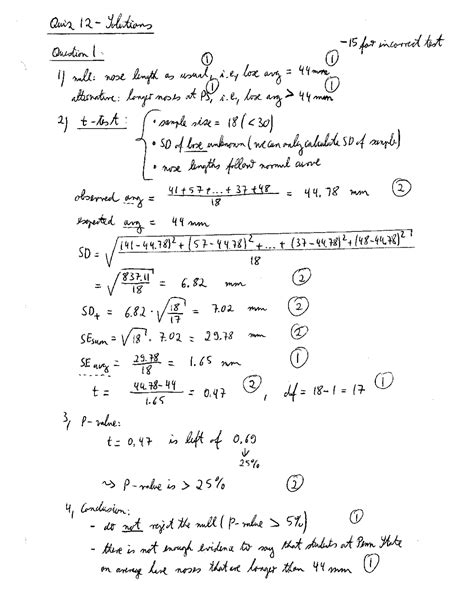 Quiz 12 - Solutions
-15 for incorrect test
Question 1:
1) null: nose length as usual, i.e., box avg = 44 mm ① ①
alternative: longer noses at PS, i.e., box avg > 44 mm ① ①
2) t-test: { • sample size = 18 (< 30)
• SD of box unknown (we can only calculate SD of sample)
• nose lengths follow normal curve
observed avg = (41+57+...+37+48)/18 = 44.78 mm ②
expected avg = 44 mm
SD = √(((41-44.78)²+(57-44.78)²+...+(37-44.78)²+(48-44.78)²)/18)
= √(837.11/18) = 6.82 mm ②
SD₊ = 6.82 · √(18/17) = 7.02 mm ②
SEsum = √18 · 7.02 = 29.78 mm ②
SEavg = 29.78/18 = 1.65 mm ①
t = (44.78-44)/1.65 = 0.47 ②, df = 18-1 = 17 ①
3, P-value:
t = 0,47 is left of 0,69
↓
25%
⇝ P-value is > 25% ②
4, Conclusion:
- do not reject the null (P-value > 5%) ①
- there is not enough evidence to say that students at Penn State
on average have noses that are longer than 44 mm ①